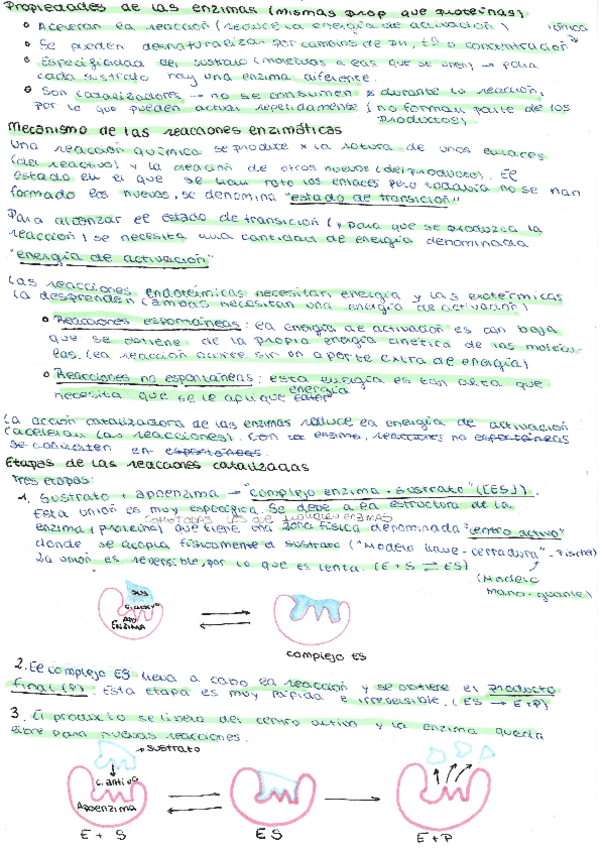 Propiedades de las enzimas (mismas prop que proteínas)
• Aceleran la reacción (reduce la energía de activación) iónica
• Se pueden desnaturalizar por cambios de pH, tª o concentración
• Especificidad del sustrato (moléculas a las que se unen) → para
cada sustrato hay una enzima diferente.
• Son catalizadores → no se consumen durante la reacción,
por lo que pueden actuar repetidamente (no forman parte de los
productos)
Mecanismo de las reacciones enzimáticas
Una reacción química se produce x la rotura de unos enlaces
(del reactivo) y la creación de otros nuevos (del producto). El
estado en el que se han roto los enlaces pero todavía no se han
formado los nuevos, se denomina "estado de transición"
Para alcanzar el estado de transición (y para que se produzca la
reacción) se necesita una cantidad de energía denominada
"energía de activación"
Las reacciones endotérmicas necesitan energía y las exotérmicas
la desprenden (ambas necesitan una energía de activación)
• Reacciones espontáneas: la energía de activación es tan baja
que se obtiene de la propia energía cinética de las molécu-
las. (la reacción ocurre sin un aporte extra de energía)
• Reacciones no espontáneas: esta energía es tan alta que
necesita que se le aplique energía
La acción catalizadora de las enzimas reduce la energía de activación
(aceleran las reacciones). Con la enzima, reacciones no espontáneas
se convierten en espontáneas.
Etapas de las reacciones catalizadas
Tres etapas:
1. Sustrato + apoenzima → "complejo enzima-sustrato" ([ES]).
Esta unión es muy específica. Se debe a la estructura de la
COMO TODAS LAS QUE ENZIMAS
enzima (proteína) que tiene una zona física denominada "centro activo"
donde se acopla físicamente el sustrato ("Modelo llave-cerradura" - Fischer)
La unión es reversible, por lo que es lenta. (E + S ⇌ ES)
(Modelo
mano-guante)
sus
c.activo
APO
ENZIMA
complejo ES
2. El complejo ES lleva a cabo la reacción y se obtiene el producto
final (P). Esta etapa es muy rápida e irreversible. (ES → E+P)
3. El producto se libera del centro activo y la enzima queda
libre para nuevas reacciones.
→ sustrato
c. activo
Apoenzima
E + S
ES
E + P